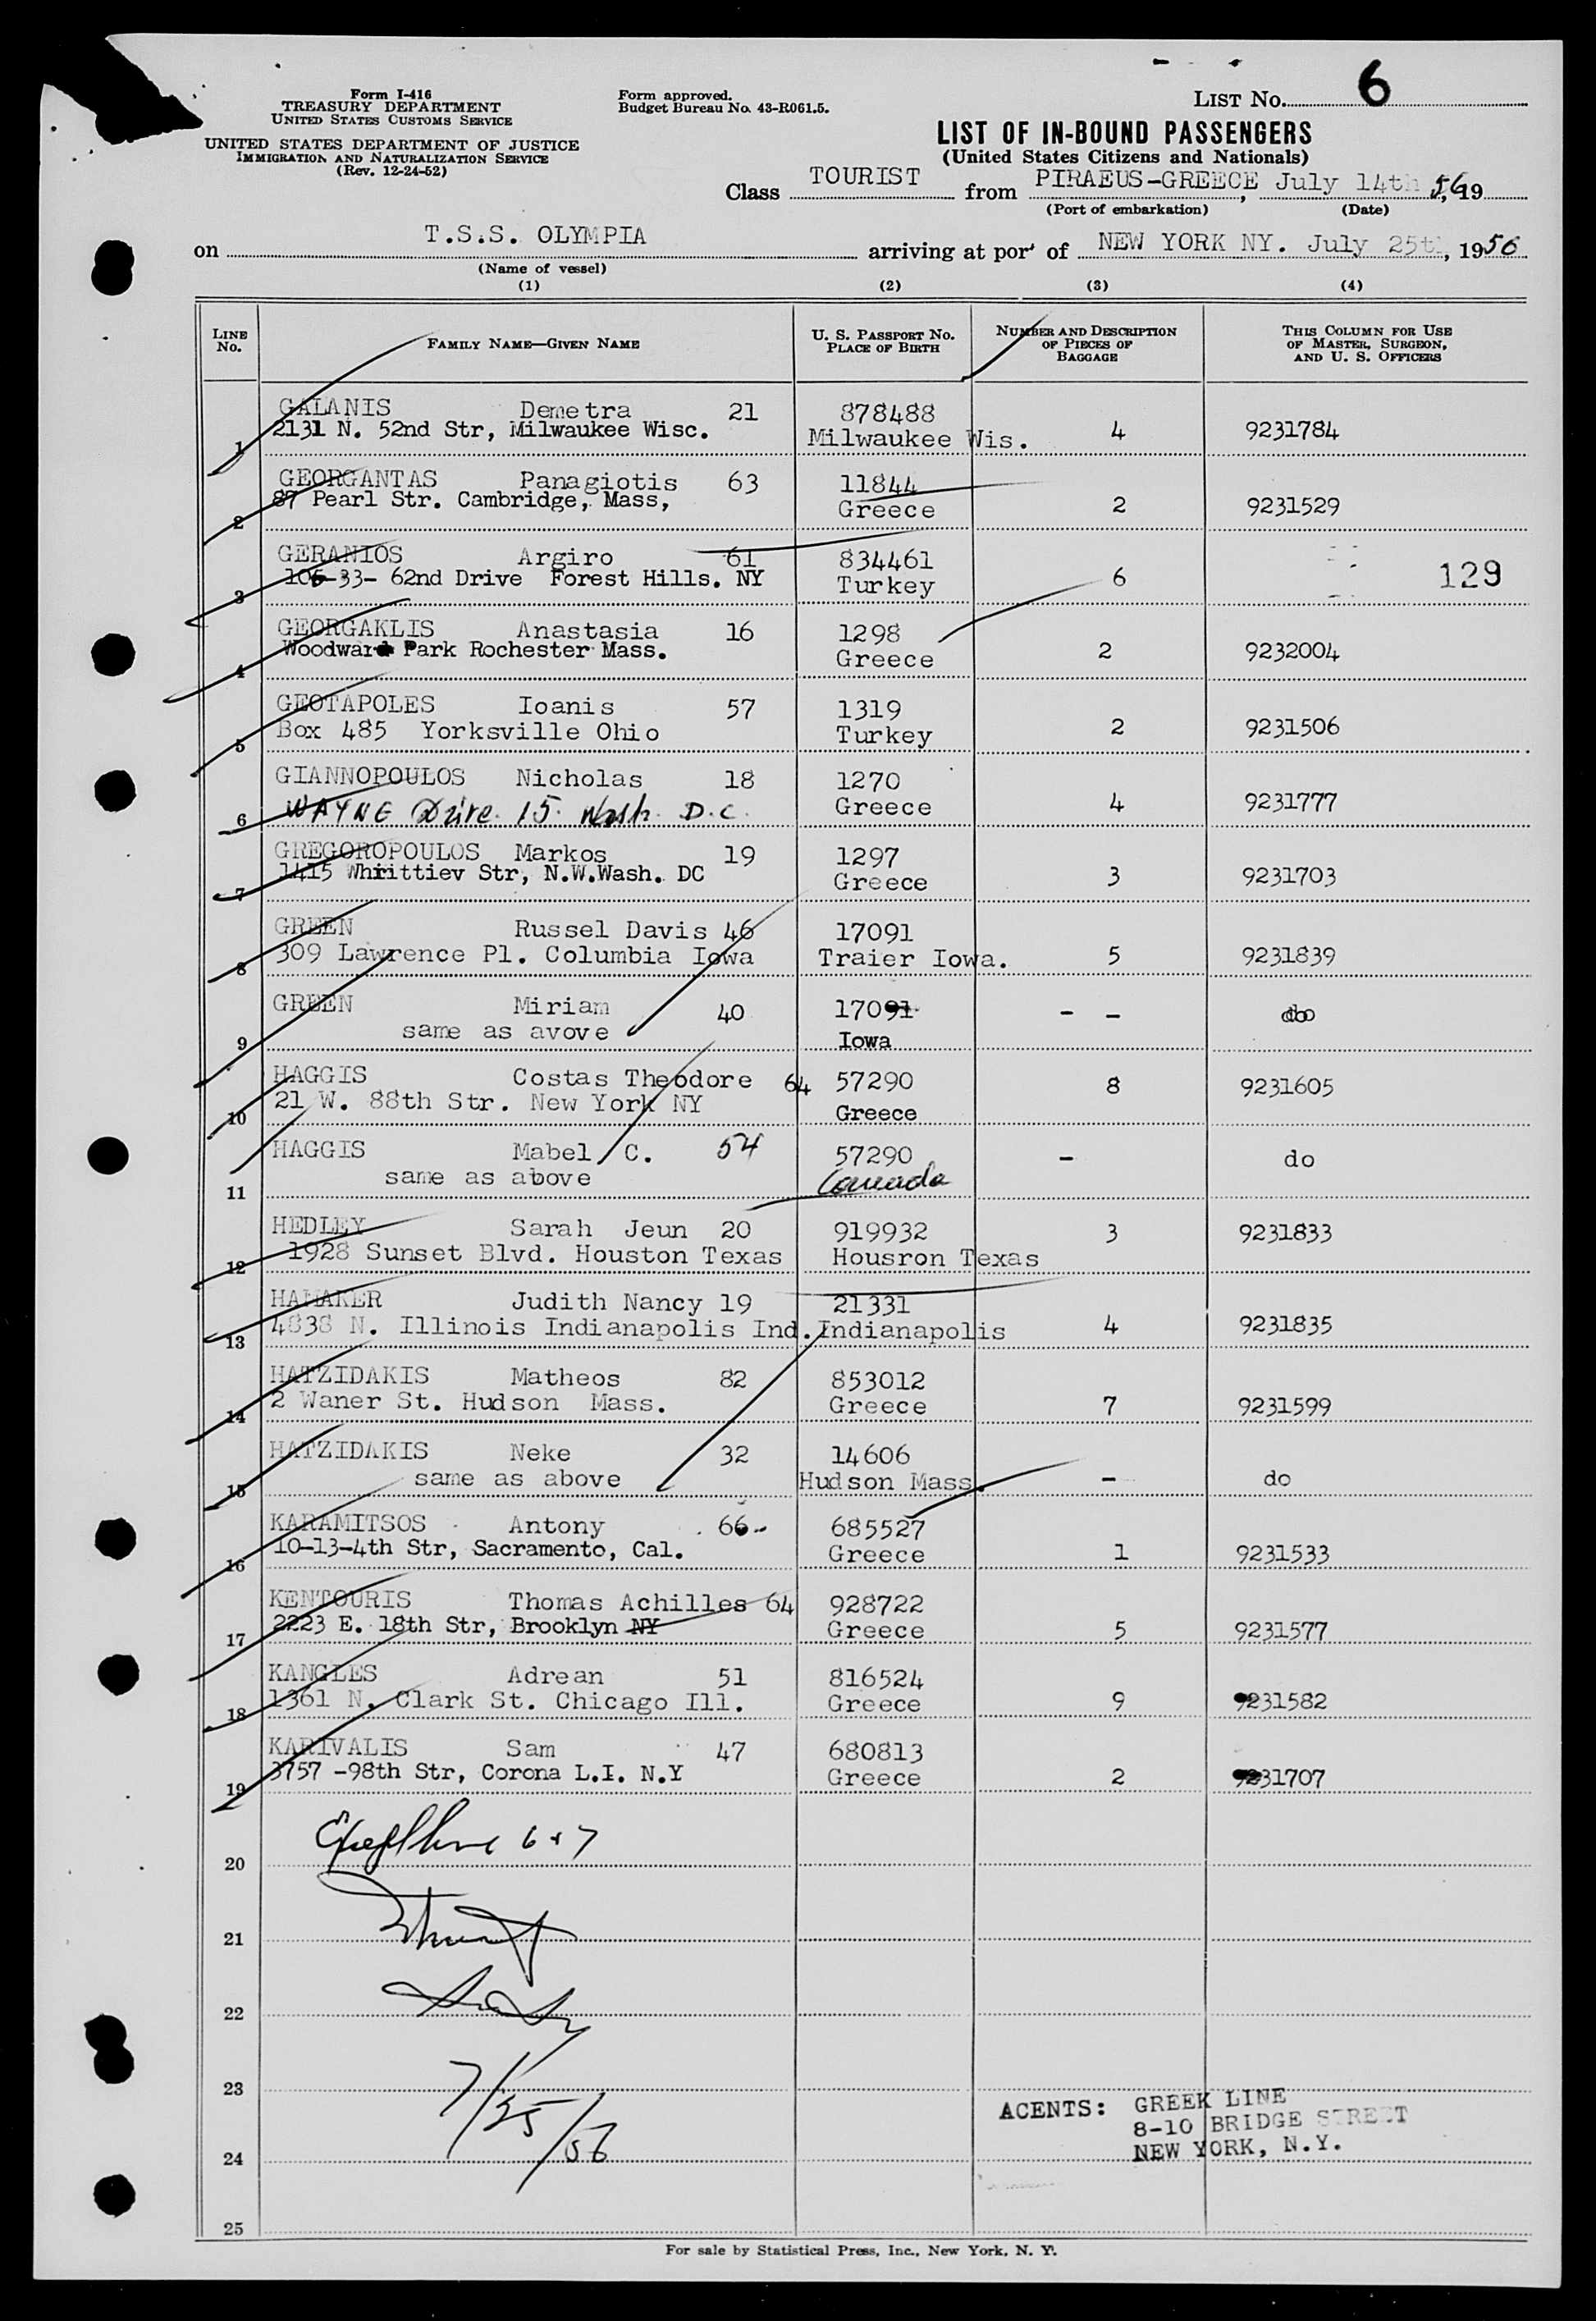 Form I-416
TREASURY DEPARTMENT
UNITED STATES CUSTOMS SERVICE
UNITED STATES DEPARTMENT OF JUSTICE
IMMIGRATION AND NATURALIZATION SERVICE
(Rev. 12-24-52)
Form approved.
Budget Bureau No. 43-R061.5.
LIST NO. 6
LIST OF IN-BOUND PASSENGERS
(United States Citizens and Nationals)
Class TOURIST from PIRAEUS-GREECE, July 14th 56, 19
(Port of embarkation) (Date)
on T.S.S. OLYMPIA arriving at port of NEW YORK NY. July 25th, 1956
(Name of vessel)
(1) (2) (3) (4)
LINE NO. FAMILY NAME—GIVEN NAME U. S. PASSPORT NO. PLACE OF BIRTH NUMBER AND DESCRIPTION OF PIECES OF BAGGAGE THIS COLUMN FOR USE OF MASTER, SURGEON, AND U. S. OFFICERS
GALANIS Demetra 21 878488
1 2131 N. 52nd Str, Milwaukee Wisc. Milwaukee Wis. 4 9231784
GEORGANTAS Panagiotis 63 11844
2 87 Pearl Str. Cambridge, Mass, Greece 2 9231529
GERANIOS Argiro 61 834461
3 105-33- 62nd Drive Forest Hills. NY Turkey 6 129
GEORGAKLIS Anastasia 16 1298
4 Woodward Park Rochester Mass. Greece 2 9232004
GEOTAPOLES Ioanis 57 1319
5 Box 485 Yorksville Ohio Turkey 2 9231506
GIANNOPOULOS Nicholas 18 1270
6 WAYNE Drive. 15. Wash. D.C. Greece 4 9231777
GREGOROPOULOS Markos 19 1297
7 1415 Whrittiev Str, N.W.Wash. DC Greece 3 9231703
GREEN Russel Davis 46 17091
8 309 Lawrence Pl. Columbia Iowa Traier Iowa. 5 9231839
GREEN Miriam 40 17091 - - do
9 same as avove Iowa
HAGGIS Costas Theodore 64 57290 8 9231605
10 21 W. 88th Str. New York NY Greece
HAGGIS Mabel C. 54 57290 - do
11 same as above Canada
HEDLEY Sarah Jeun 20 919932 3 9231833
12 1928 Sunset Blvd. Houston Texas Housron Texas
HAMAKER Judith Nancy 19 21331
13 4838 N. Illinois Indianapolis Ind. Indianapolis 4 9231835
HATZIDAKIS Matheos 82 853012
14 2 Waner St. Hudson Mass. Greece 7 9231599
HATZIDAKIS Neke 32 14606
15 same as above Hudson Mass. - do
KARAMITSOS Antony 66 685527
16 10-13-4th Str, Sacramento, Cal. Greece 1 9231533
KENTOURIS Thomas Achilles 64 928722
17 2223 E. 18th Str, Brooklyn NY Greece 5 9231577
KANGLES Adrean 51 816524
18 1361 N. Clark St. Chicago Ill. Greece 9 9231582
KARIVALIS Sam 47 680813
19 3757 -98th Str, Corona L.I. N.Y Greece 2 9231707
20
21
22
23
7/25/56
ACENTS: GREEK LINE
8-10 BRIDGE STREET
NEW YORK, N.Y.
24
25
For sale by Statistical Press, Inc., New York, N. Y.